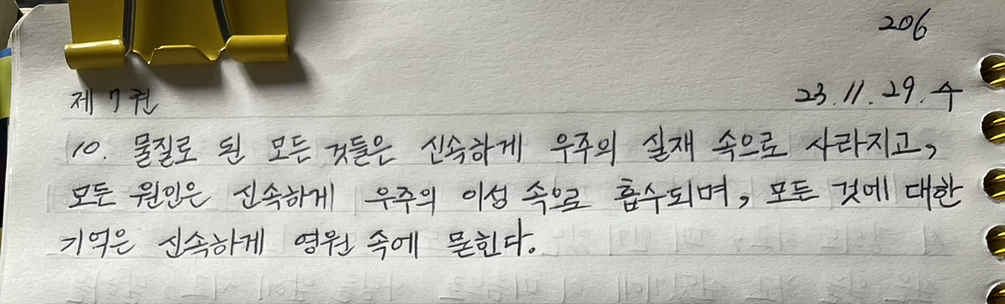 206
제 7권 23. 11. 29. 수
10. 물질로 된 모든 것들은 신속하게 우주의 실재 속으로 사라지고,
모든 원인은 신속하게 우주의 이성 속으로 흡수되며, 모든 것에 대한
기억은 신속하게 영원 속에 묻힌다.